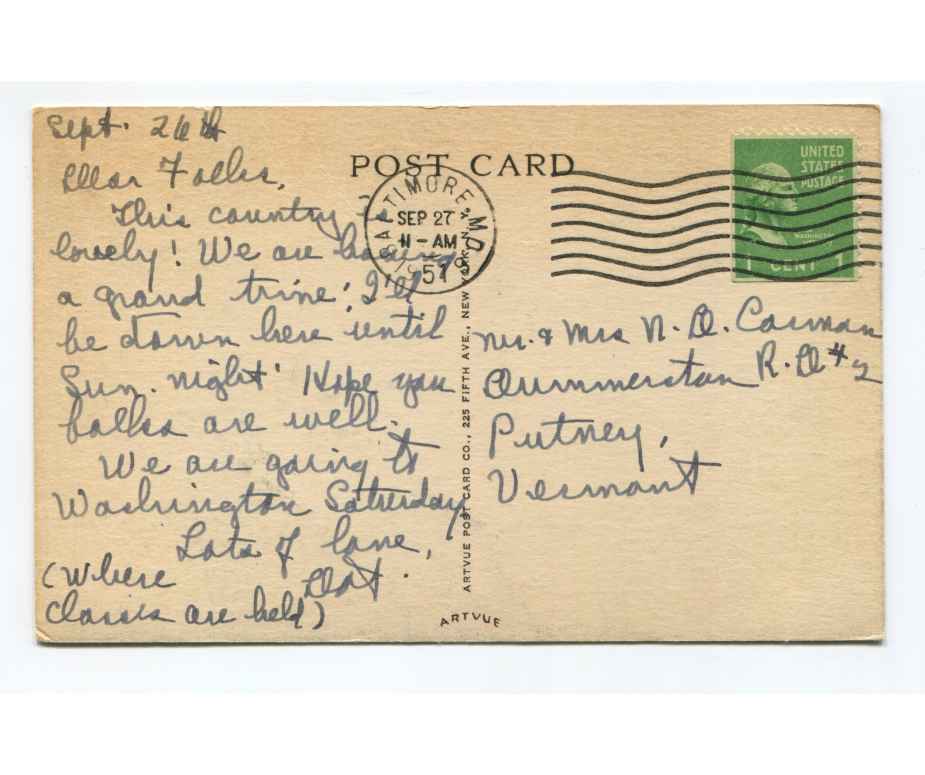 Sept. 26th
Dear Folks,
This country is
lovely! We are having
a grand time! I'll
be down here until
Sun. night! Hope you
folks are well.
We are going to
Washington Saturday
Lots of love,
Dot.
(Where
classes are held)
POST CARD
BALTIMORE, MD.
SEP 27
11 - AM
1951
UNITED
STATES
POSTAGE
WASHINGTON
1 CENT 1
Mr. & Mrs N. D. Cosman
Dummerston R.D #2
Putney,
Vermont
ARTVUE POST CARD CO., 225 FIFTH AVE., NEW YORK, N.Y.
ARTVUE